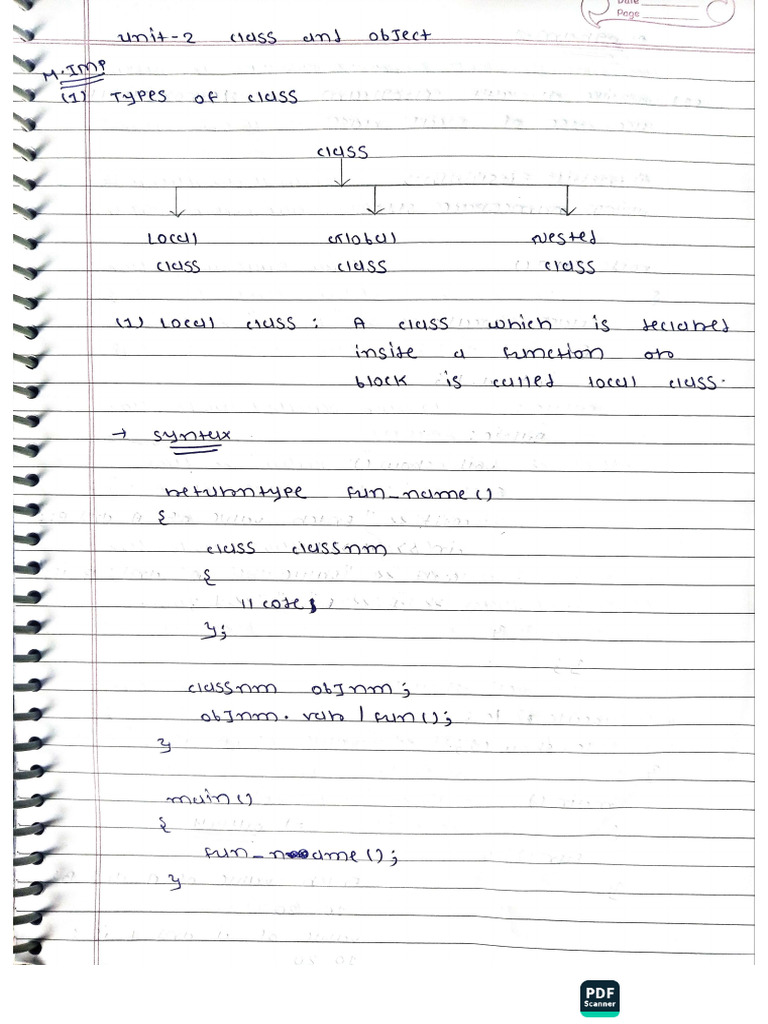 Date
Page
Unit-2 class and object
M.IMP
(1) Types of class
class
Local Global Nested
class class class
(1) Local class : A class which is declared
inside a function or
block is called local class.
→ syntax
returntype fun_name()
{
class classnm
{
//code;
};
classnm objnm;
objnm. var / fun();
}
main()
{
fun_name();
}
PDF
Scanner